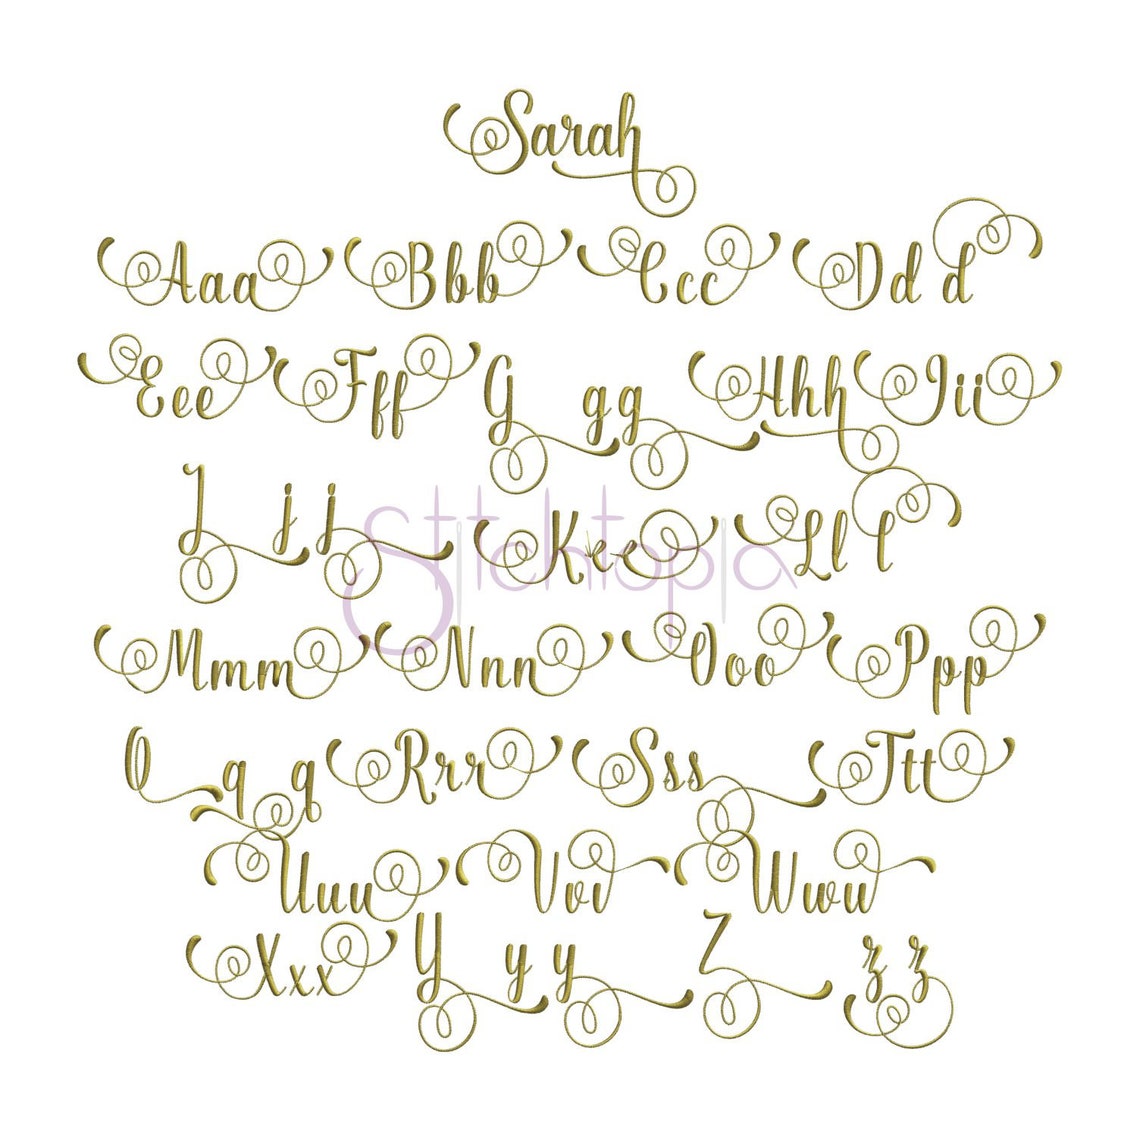 Sarah
Aaa Bbb Ccc Dd d
Eee Fff G gg Hhh Iii
J jj Kee Ll l
Stitchtopia
Mmm Nnn Ooo Ppp
Q q q Rrr Sss Ttt
Uuu Vvv Wwu
Xxx Y yy Z zz